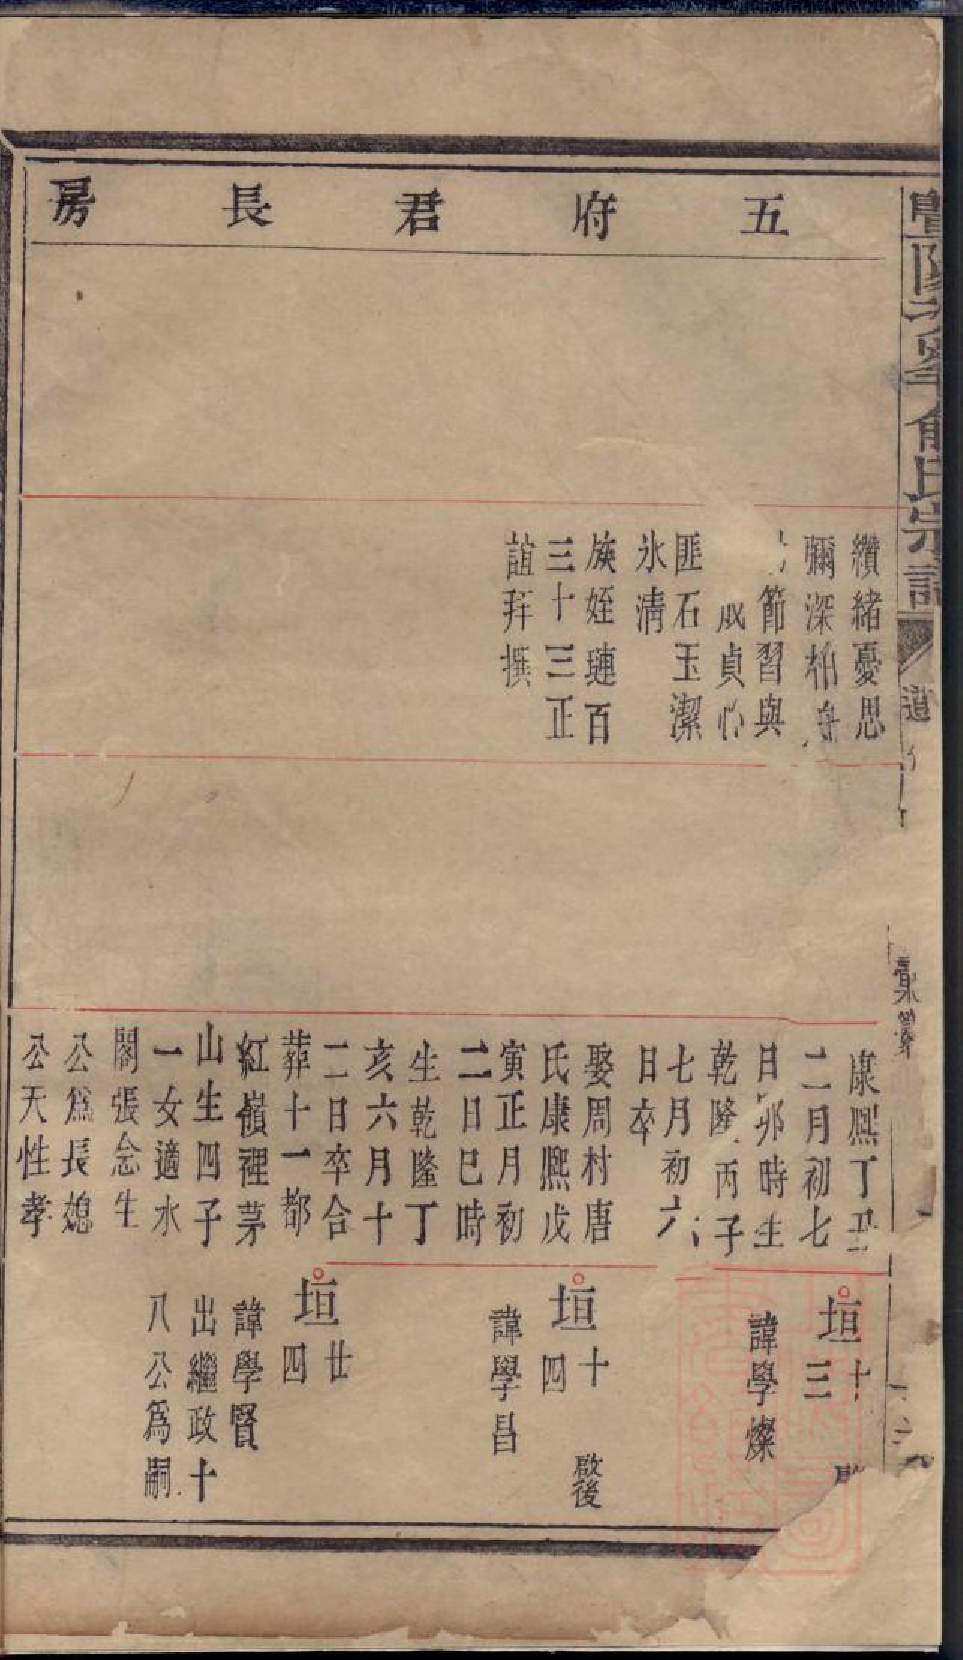 五府君長房
纘緒憂思
彌深柏舟
節習與
成貞心
匪石玉潔
氷清
族姪璉百
三十三正
誼拜撰
康熙丁丑
二月初七
日卯時生
乾隆丙子
七月初六
日卒
娶周村唐
氏康熙戊
寅正月初
二日巳時
生乾隆丁
亥六月十
二日卒合
葬十一都
紅嶺裡茅
山生四子
一女適水
閣張念生
公爲長媳
公天性孝
垣十三
諱學燦
垣十四
啟後
諱學昌
垣廿四
諱學賢
出繼政十
八公爲嗣
俞氏宗譜
彙纂